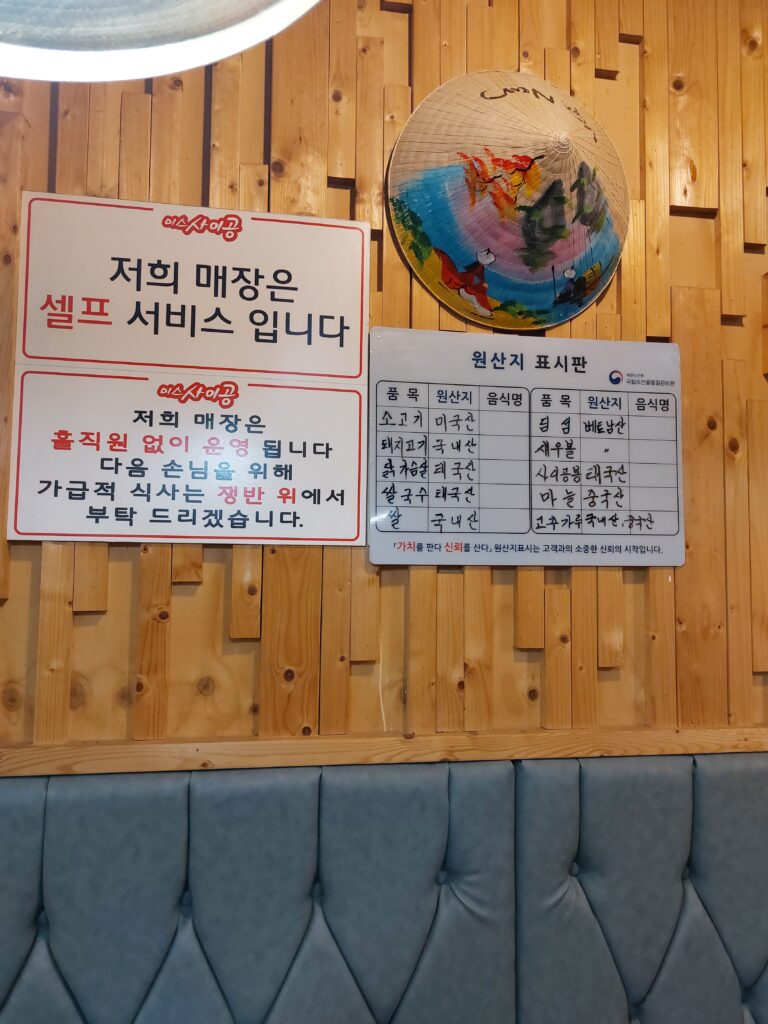 미스사이공
저희 매장은
셀프 서비스 입니다
미스사이공
저희 매장은
홀직원 없이 운영 됩니다
다음 손님을 위해
가급적 식사는 쟁반 위에서
부탁 드리겠습니다.
원산지 표시판
해양수산부
국립수산물품질관리원
품 목 원산지 음식명
소고기 미국산
돼지고기 국내산
닭가슴살 태국산
쌀국수 태국산
쌀 국내산
품 목 원산지 음식명
딤 섬 베트남산
새우볼 〃
사이공봉 태국산
마늘 중국산
고추가루 국내산. 중국산
「가치를 판다 신뢰를 산다」 원산지표시는 고객과의 소중한 신뢰의 시작입니다.